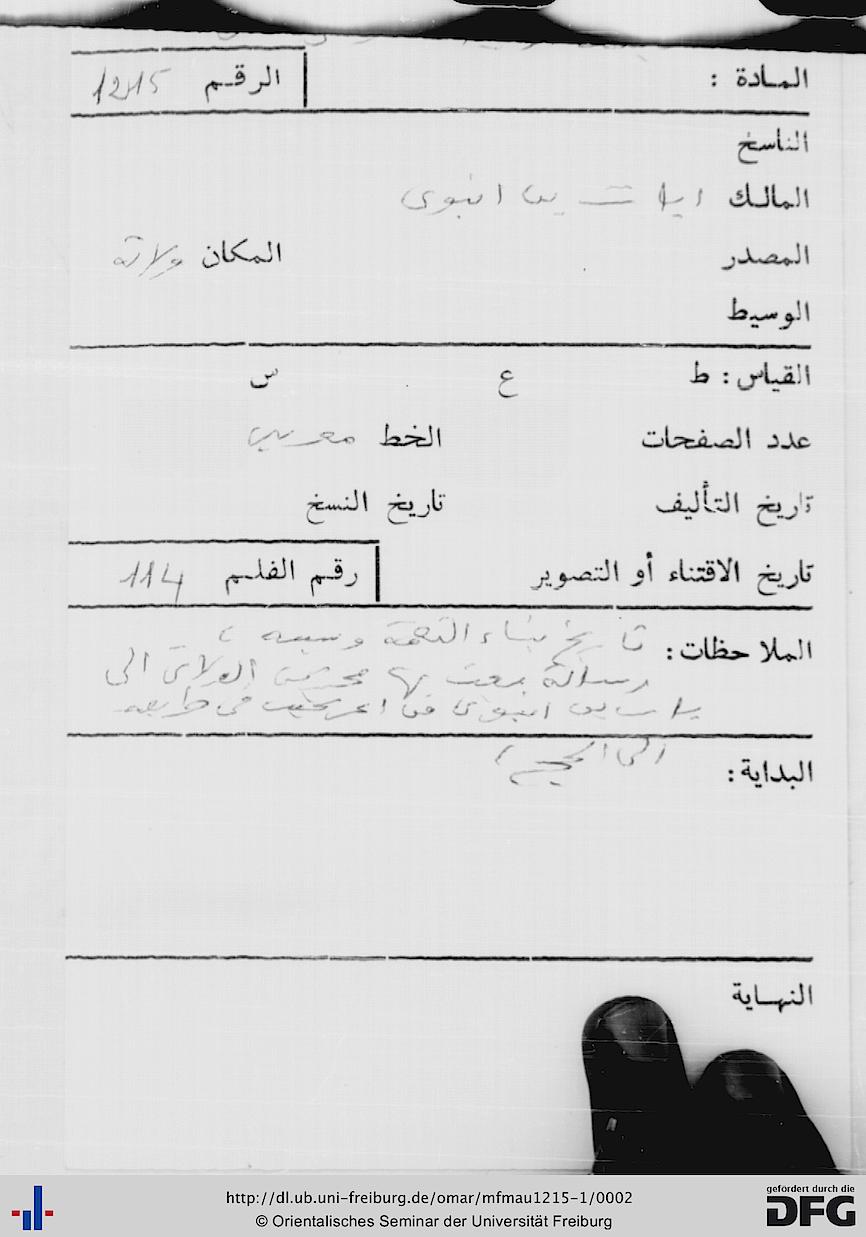 المادة : الرقم 1215
الناسخ
المالك
المصدر المكان ولاته
الوسيط
القياس : ط ع س
عدد الصفحات الخط مغربي
تاريخ التأليف تاريخ النسخ
تاريخ الاقتناء أو التصوير رقم الفلم 114
الملاحظات : تاريخ بناء النعمة وسببه ،
رسالة بعث بها الولاتي الى
في طريقه
الى الحج
البداية :
النهاية
http://dl.ub.uni-freiburg.de/omar/mfmau1215-1/0002
© Orientalisches Seminar der Universität Freiburg
gefördert durch die
DFG